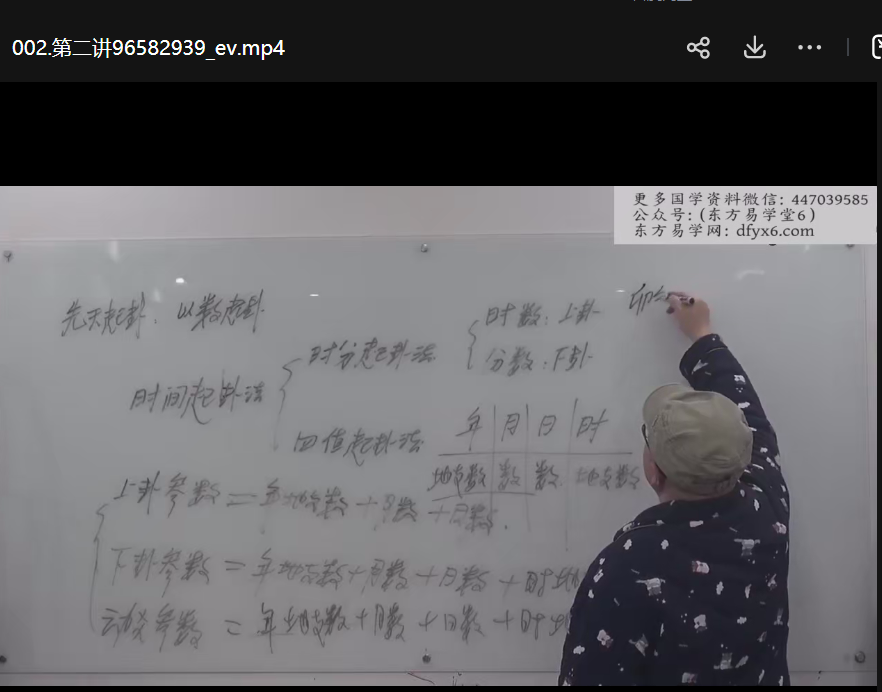 002.第二讲96582939_ev.mp4
更多国学资料微信: 447039585
公众号: (东方易学堂6)
东方易学网: dfyx6.com
先天起卦, 以数起卦
时间起卦法
时分起卦法
时数: 上卦
分数: 下卦
四值起卦法
年 月 日 时
地支数 数 数 地支数
上卦参数 = 年地支数 + 月数 + 日数.
下卦参数 = 年地支数 + 月数 + 日数 + 时地
动爻参数 = 年地支数 + 月数 + 日数 + 时地
卯